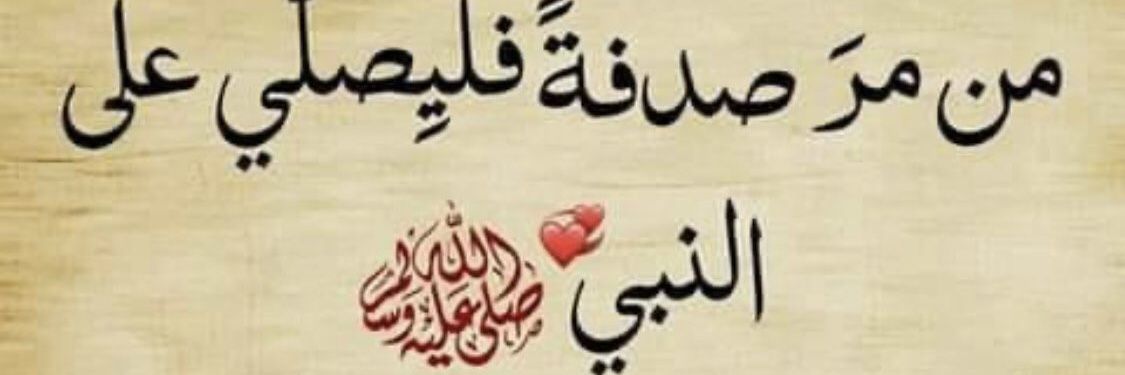 من مرَ صدفةً فليِصلّي على
النبي💞 ﷺ